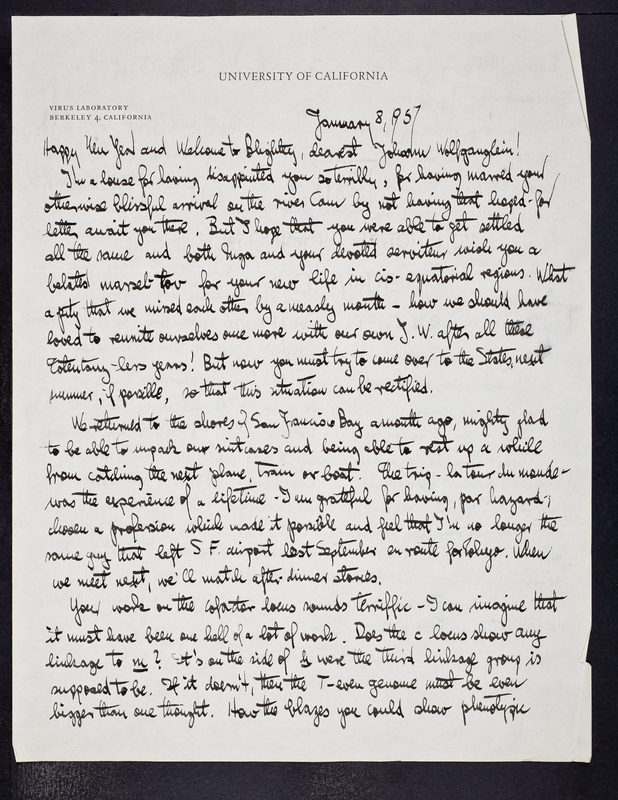 UNIVERSITY OF CALIFORNIA
VIRUS LABORATORY
BERKELEY 4, CALIFORNIA
January 8, 1957
Happy New Year and Welcome to Blighty, dearest Johann Wolfganglein!
I'm a louse for having disappointed you so terribly, for having marred your
otherwise blissful arrival on the river Cam by not having that hoped-for
letter await you there. But I hope that you were able to get settled
all the same and both Inga and your devoted serviteur wish you a
belated massel-tov for your new life in cis-equatorial regions. What
a pity that we missed each other by a measly month - how we should have
loved to reunite ourselves once more with our own J. W. after all these
-less years! But now you must try to come over to the States, next
summer, if possible, so that this situation can be rectified.
We returned to the shores of San Francisco Bay a month ago, mighty glad
to be able to unpack our suitcases and being able to rest up a while
from catching the next plane, train or boat. The trip - la tour du monde -
was the experience of a lifetime - I am grateful for having, par hazard,
chosen a profession which made it possible and feel that I'm no longer the
same guy that left S.F. airport last September en route for Tokyo. When
we meet next, we'll match after-dinner stories.
Your work on the cofactor locus sounds terriffic - I can imagine that
it must have been one hell of a lot of work. Does the c locus show any
linkage to m? It's on the side of h were the third linkage group is
supposed to be. If it doesn't, then the T-even genome must be even
bigger than one thought. How the blazes you could show phenotypic